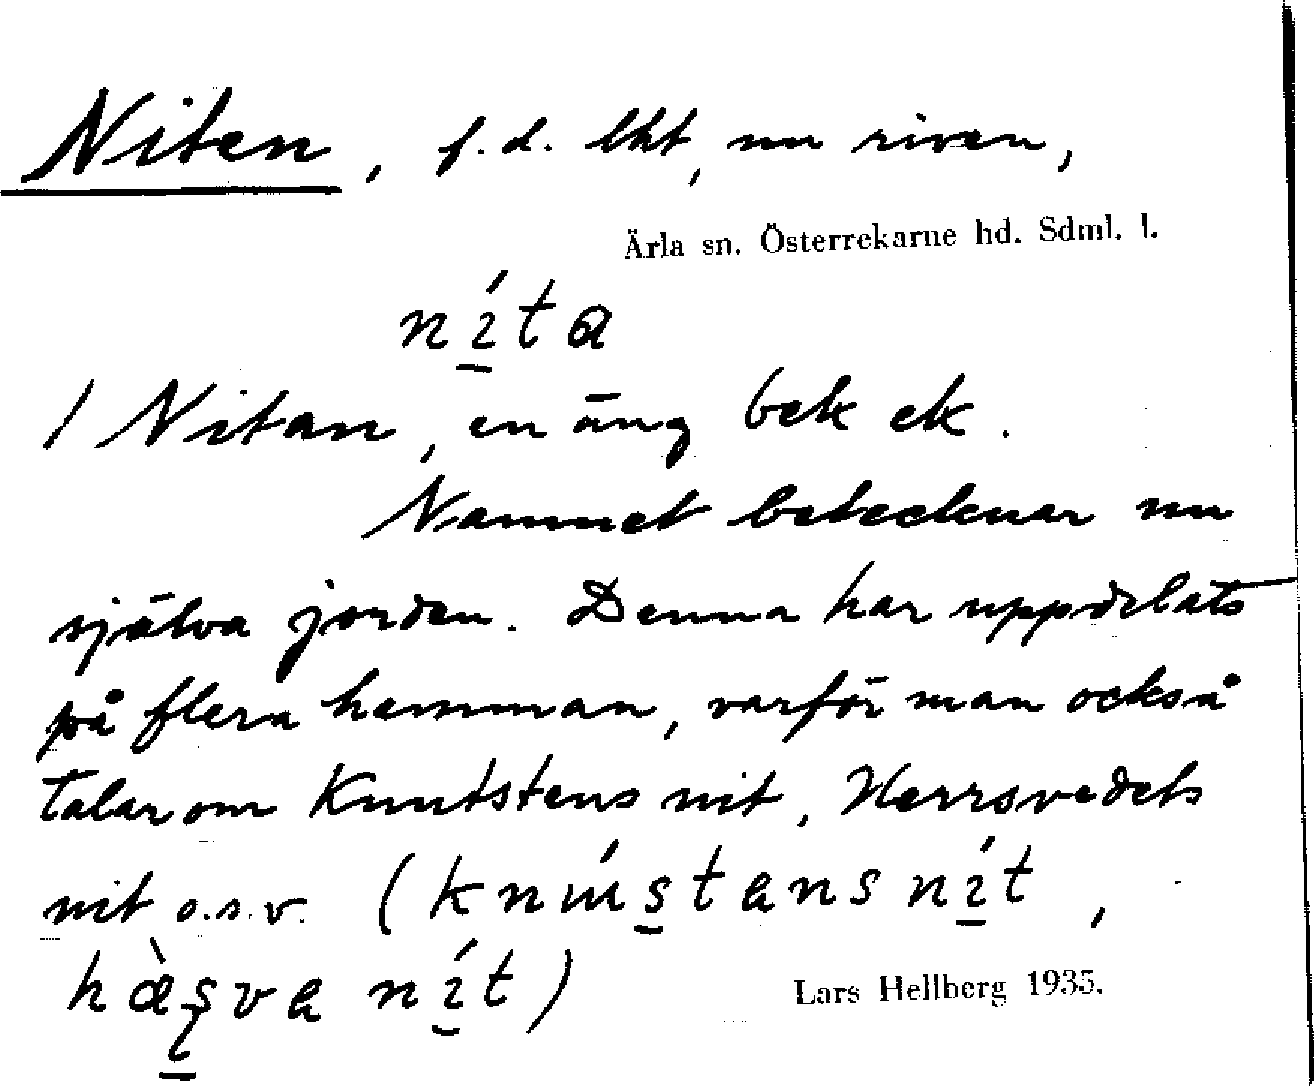 Niten, f.d. lht, nu riven,
Ärla sn. Österrekarne hd. Sdml. l.
níta
1 Nitan, en äng bek ek.
Namnet betecknar nu
själva jorden. Denna har uppdelats
på flera hemman, varför man också
talar om Knutstens nit, Herrsvedets
nit o.s.v. (knústens nít,
hæ̀ṣve nít)
Lars Hellberg 1935.